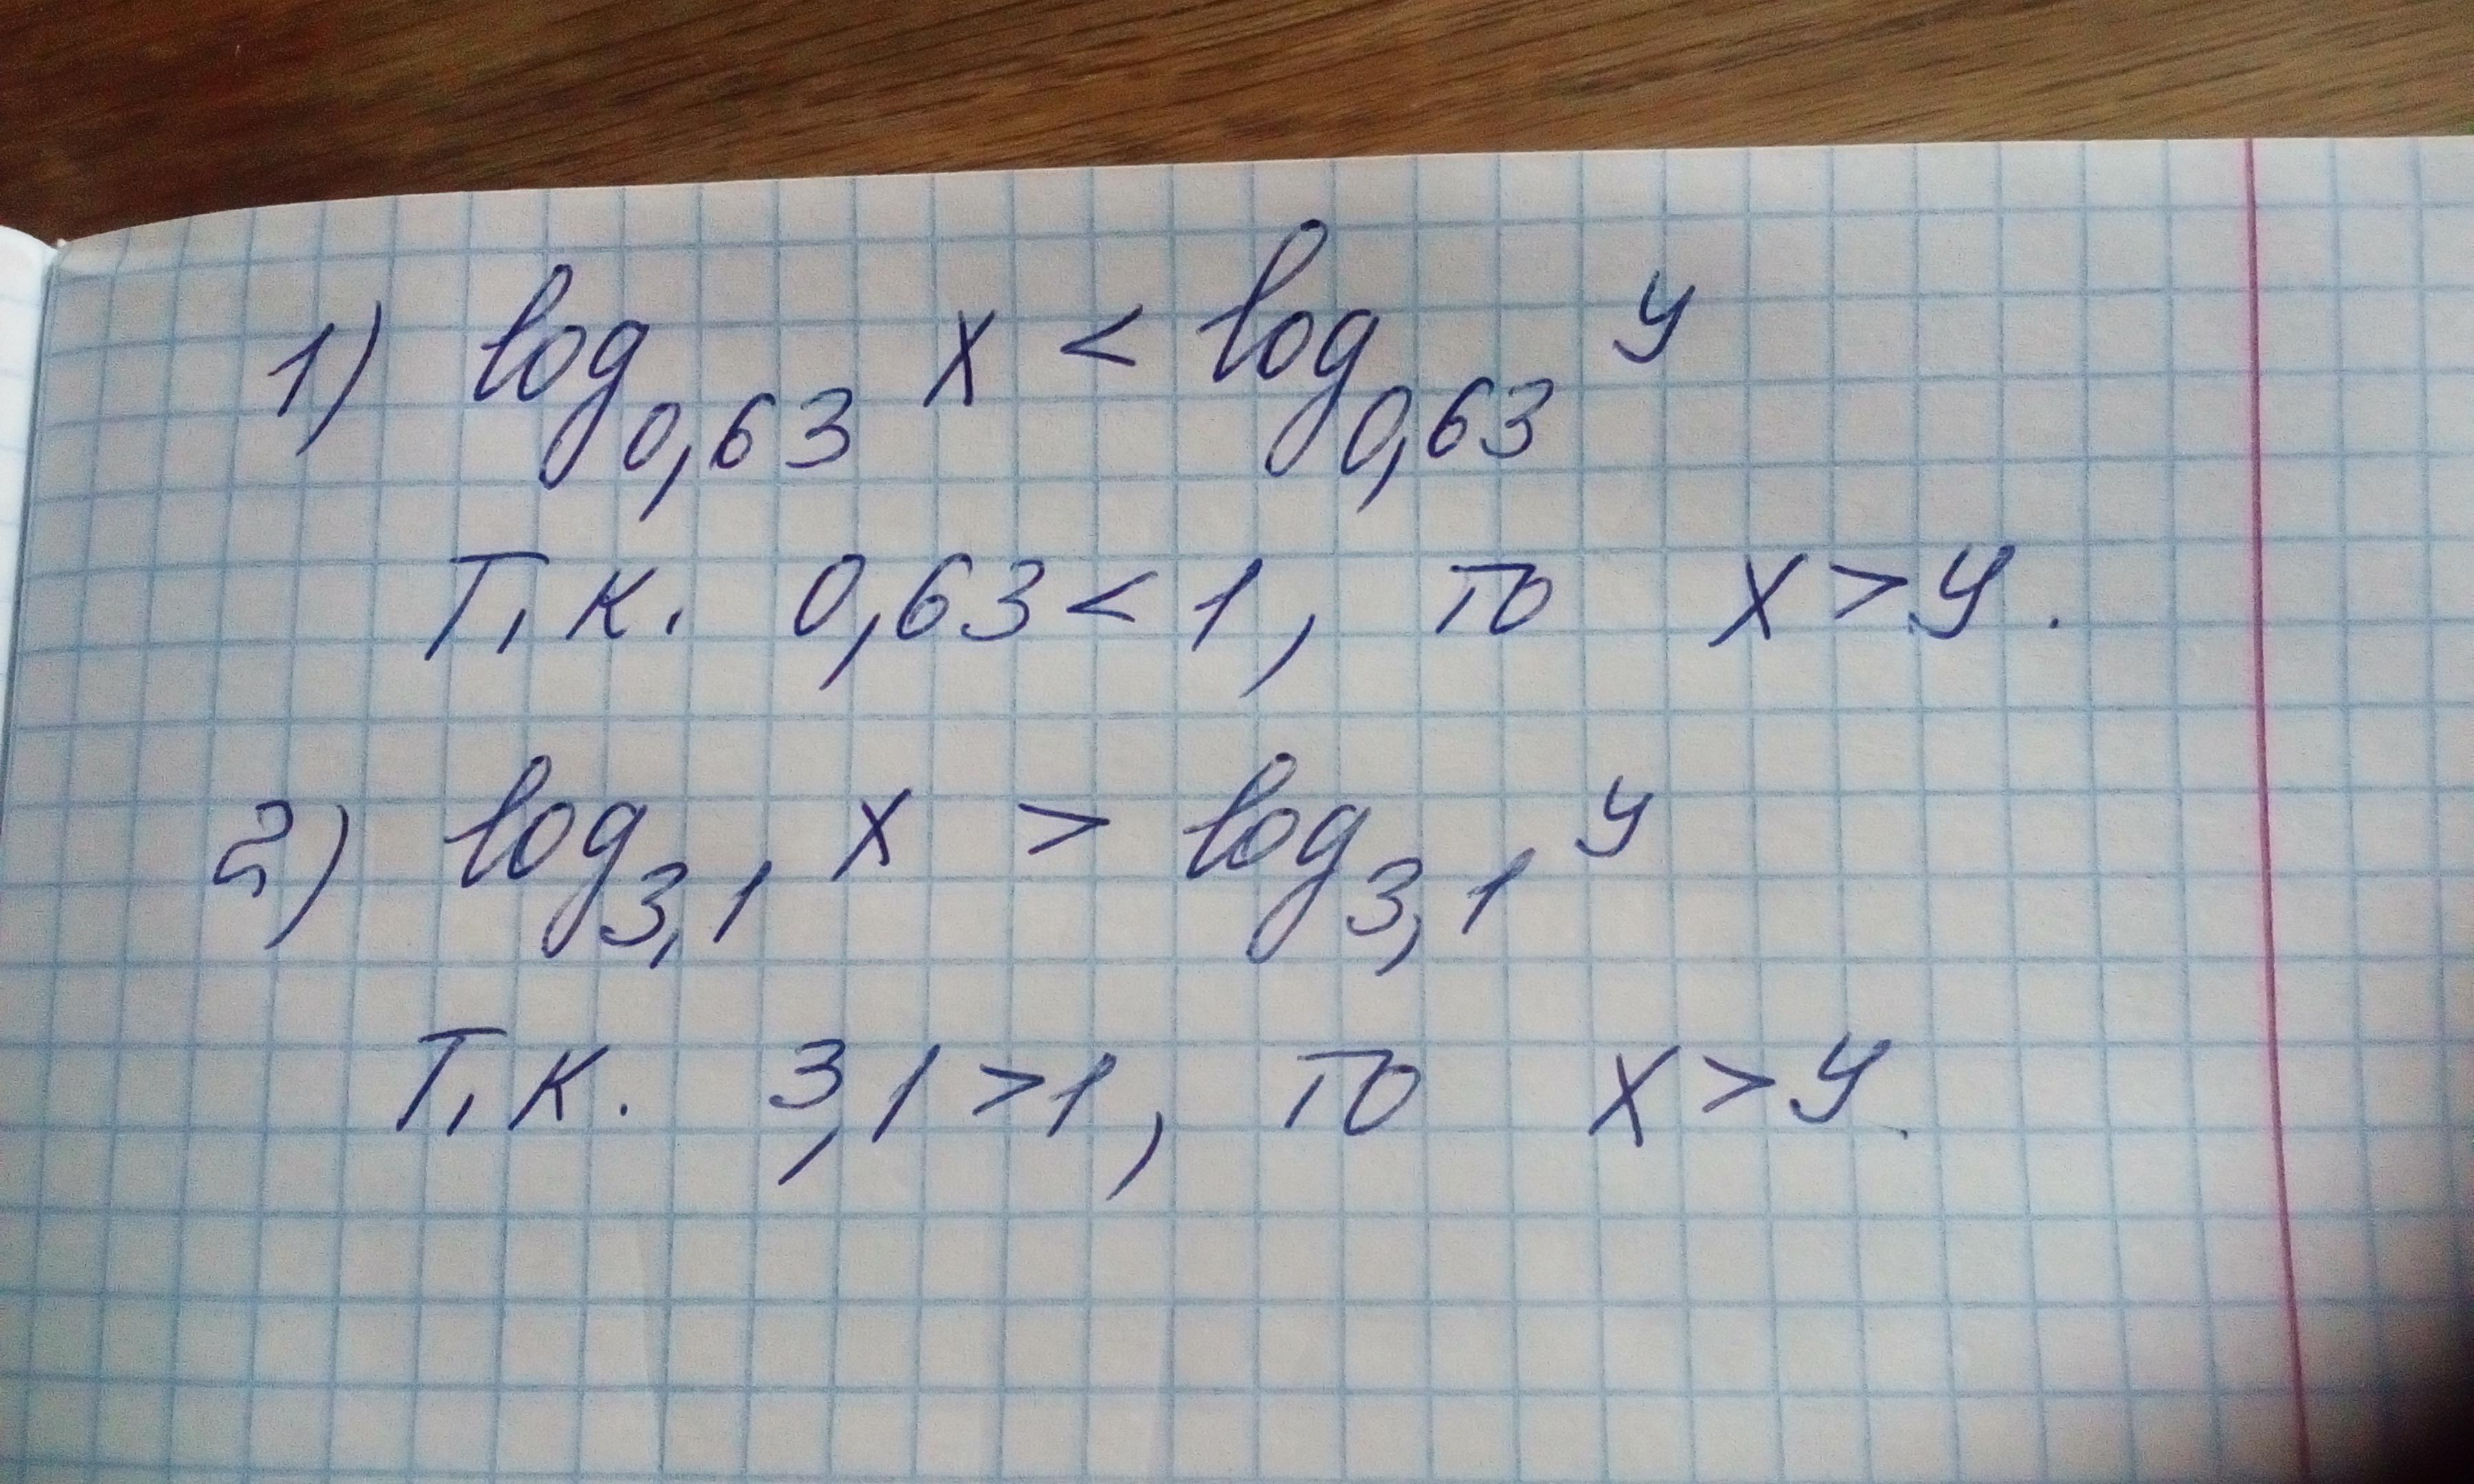 1) log₀,₆₃ x < log₀,₆₃ y
Т.к. 0,63 < 1, то x > y.
2) log₃,₁ x > log₃,₁ y
Т.к. 3,1 > 1, то x > y.